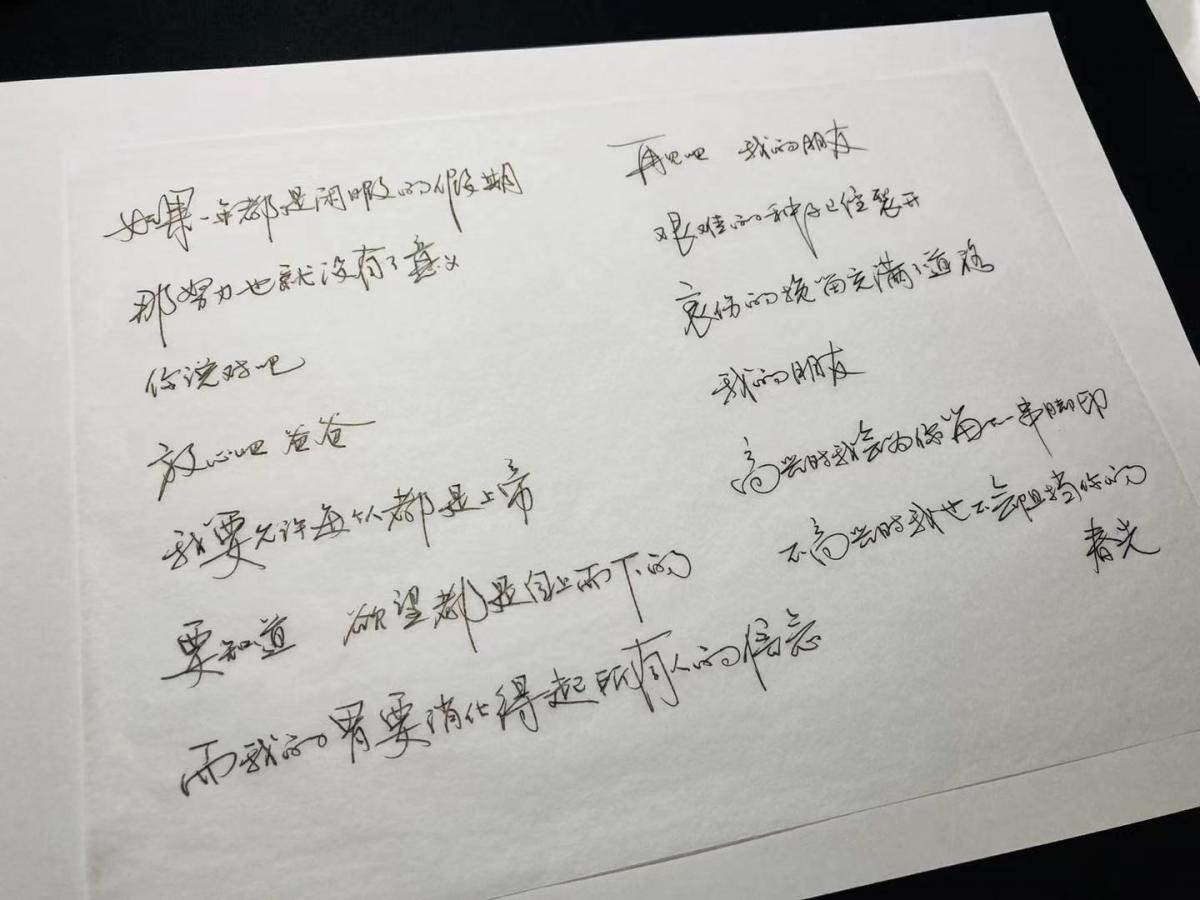 如果一年都是闲暇的假期
那努力也就没有了意义
你说好吧
放心吧 爸爸
我要允许每个人都是上帝
要知道 欲望都是自上而下的
而我的胃要消化得起所有人的信念
再见吧 我的朋友
艰难的种子已经裂开
哀伤的挽留充满了道路
我的朋友
高兴时我会为你留下一串脚印
不高兴时我也不会阻挡你的
春光